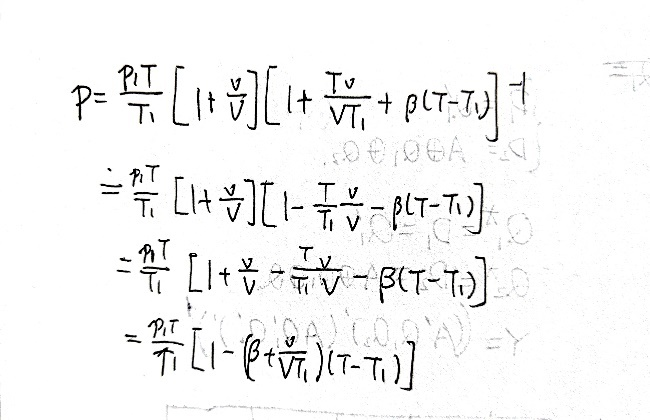 P = \frac{P_1 T}{T_1} [1 + \frac{v}{V}] [1 + \frac{Tv}{VT_1} + β(T-T_1)]^{-1}
≐ \frac{P_1 T}{T_1} [1 + \frac{v}{V}] [1 - \frac{T}{T_1} \frac{v}{V} - β(T-T_1)]
= \frac{P_1 T}{T_1} [1 + \frac{v}{V} - \frac{T v}{T_1 V} - β(T-T_1)]
= \frac{P_1 T}{T_1} [1 - (β + \frac{v}{VT_1})(T-T_1)]